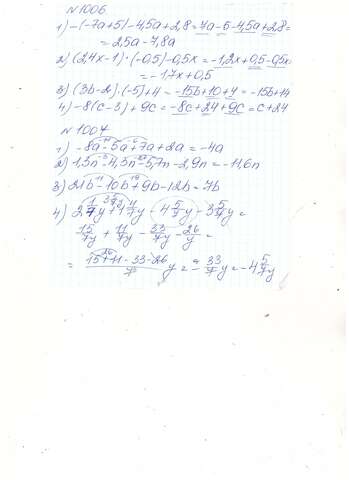 N1006
1) -(-7a+5)-4,5a+2,8=7a-5-4,5a+2,8=
=2,5a-7,8a
2) (2,4x-1)·(-0,5)-0,5x=-1,2x+0,5-0,5x
=-1,7x+0,5
3) (3b-2)·(-5)+4=-15b+10+4=-15b+14
4) -8(c-3)+9c=-8c+24+9c=c+24
N1007
1) -8a-5a+7a+2a=-4a
2) 1,3n-4,3n-5,7n-2,9n=-11,6n
3) 21b-10b+9b-12b=7b
15/7y+11/7y-33/7y-26/y=
=(15+11-33-26)/7y=-33/7y=-4 5/7y